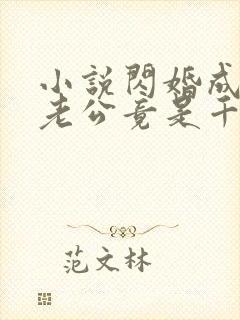 小說閃婚成
老公竟是千
范文林